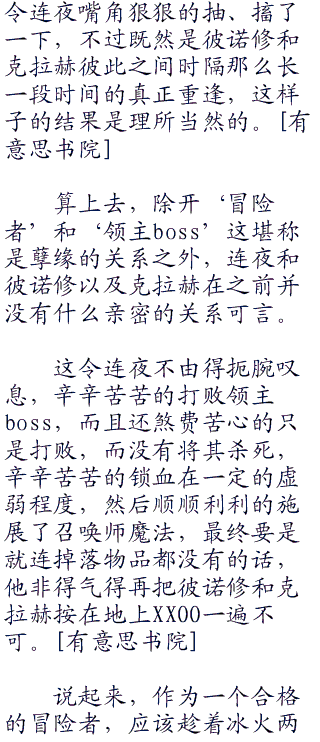 令连夜嘴角狠狠的抽、搐了
一下，不过既然是彼诺修和
克拉赫彼此之间时隔那么长
一段时间的真正重逢，这样
子的结果是理所当然的。[有
意思书院]
算上去，除开‘冒险
者’和‘领主boss’这堪称
是孽缘的关系之外，连夜和
彼诺修以及克拉赫在之前并
没有什么亲密的关系可言。
这令连夜不由得扼腕叹
息，辛辛苦苦的打败领主
boss，而且还煞费苦心的只
是打败，而没有将其杀死，
辛辛苦苦的锁血在一定的虚
弱程度，然后顺顺利利的施
展了召唤师魔法，最终要是
就连掉落物品都没有的话，
他非得气得再把彼诺修和克
拉赫按在地上XXOO一遍不
可。[有意思书院]
说起来，作为一个合格
的冒险者，应该趁着冰火两